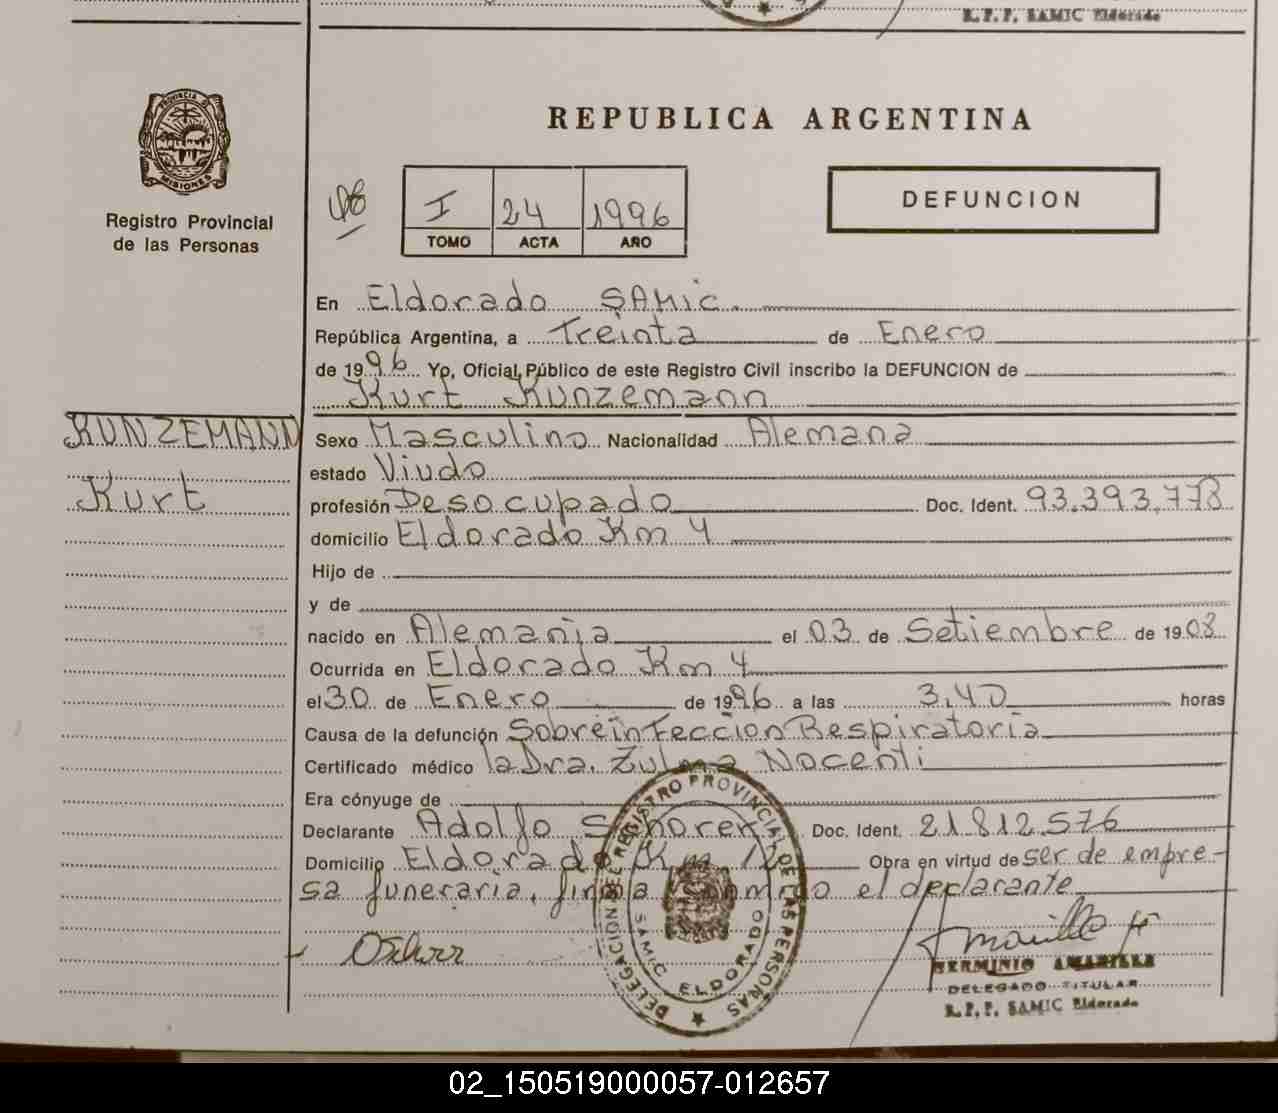 R.P.P. SAMIC Eldorado
PROVINCIA DE
MISIONES
Registro Provincial
de las Personas
REPUBLICA ARGENTINA
I 24 1996
TOMO ACTA AÑO
DEFUNCION
En Eldorado SAMIC.
República Argentina, a Treinta de Enero
de 1996 Yo, Oficial Público de este Registro Civil inscribo la DEFUNCION de
Kurt Kunzemann
KUNZEMANN
Kurt
Sexo Masculino Nacionalidad Alemana
estado Viudo
profesión Desocupado Doc. Ident. 93.393.778
domicilio Eldorado Km 4
Hijo de
y de
nacido en Alemania el 03 de Setiembre de 1908
Ocurrida en Eldorado Km 4
el 30 de Enero de 1996 a las 3,40 horas
Causa de la defunción Sobreinfeccion Respiratoria
Certificado médico la Dra. Zulma Nocenti
Era cónyuge de
Declarante Adolfo Doc. Ident. 21.812.576
Domicilio Eldorado Km Obra en virtud de ser de empre-
sa funeraria, firma conmigo el declarante
DELEGACION DEL REGISTRO PROVINCIAL DE LAS PERSONAS
SAMIC ELDORADO
HERMINIO AMARILLA
DELEGADO TITULAR
R.P.P. SAMIC Eldorado
02_150519000057-012657